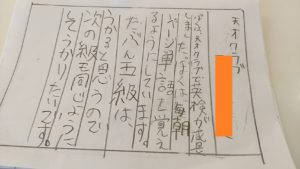 天才クラブ
天才クラブで英検が成長
しました。ぼくは毎朝
ページ単語を覚え
るようにしています。
たぶん五級は、
うかると思うので
次の級も同じように
うかりたいです。